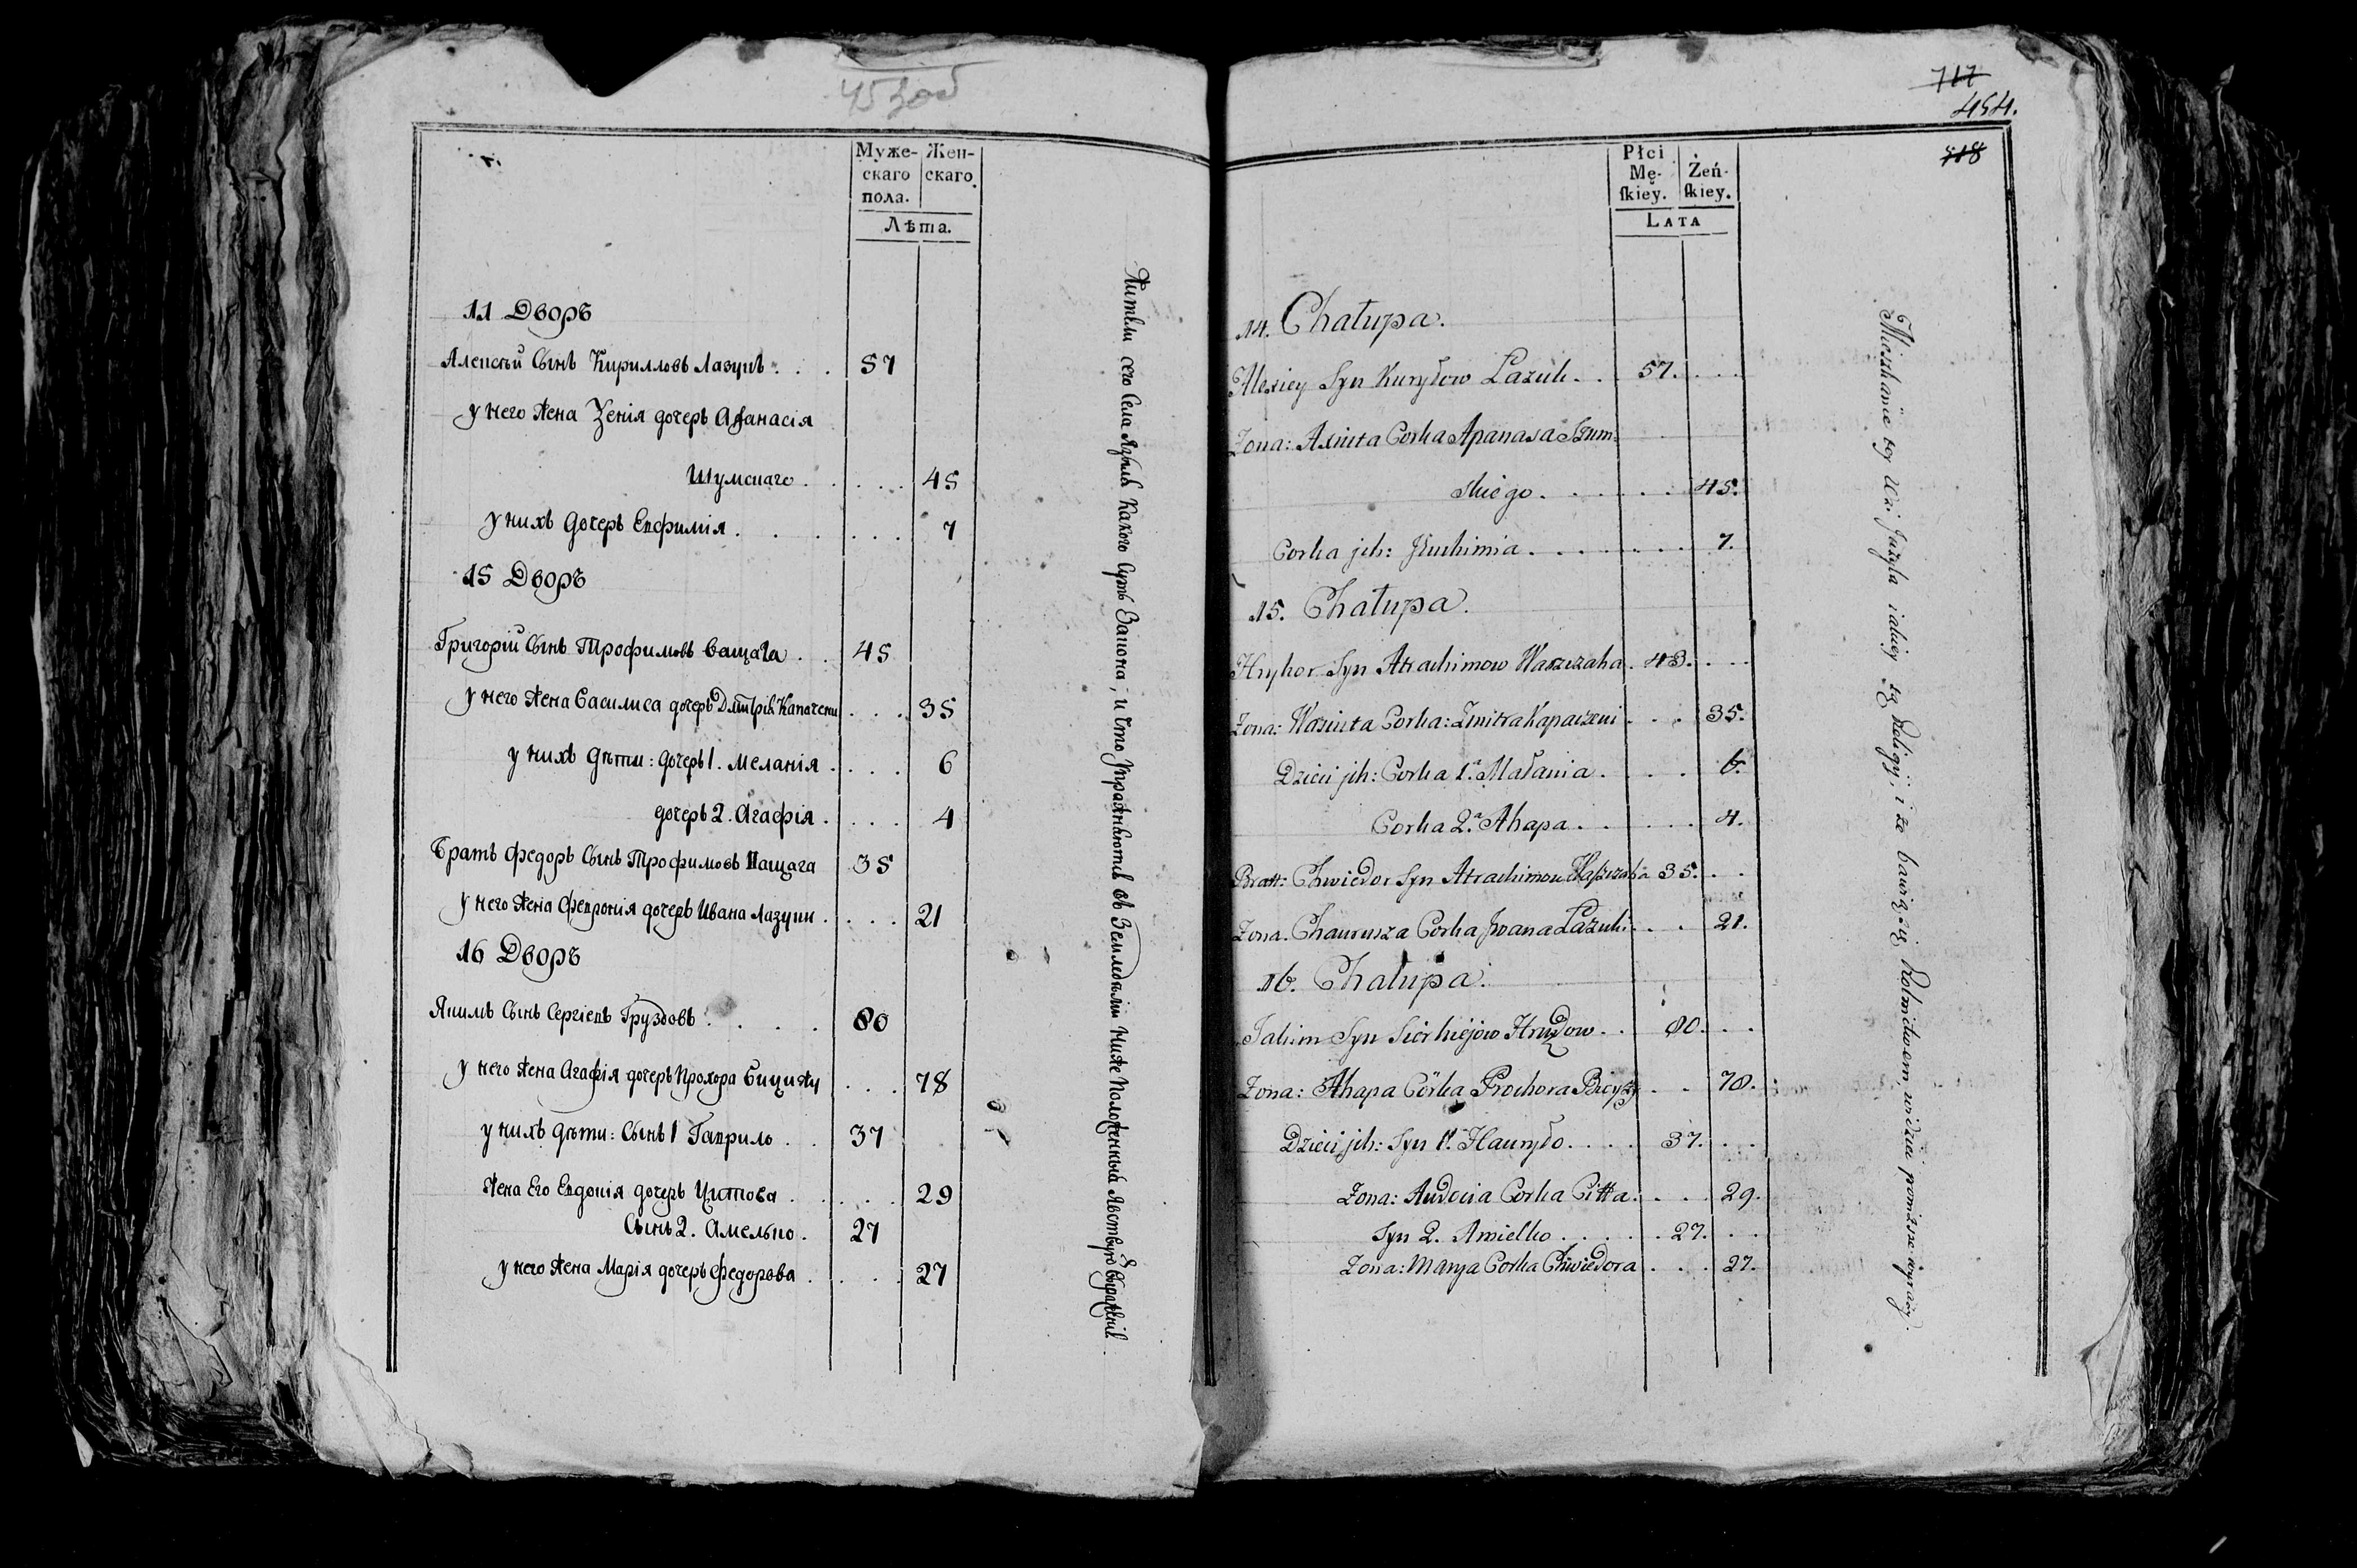 453 об
Муже-
скаго
пола.
Жен-
скаго.
Лѣта.
11 Дворъ
Алексѣй Сынъ Кирилловъ Лазукъ . . . 57
у него Жена Ѯенія дочерь Афанасія
Шумскаго . . . . . 45
у нихъ дочерь Евфимія . . . . . . 7
15 Дворъ
Григорій Сынъ Трофимовъ Ващага . . 45
у него Жена Василиса дочерь Дмитрія Капачени . . . 35
у нихъ дѣти: дочерь 1. Меланія . . . . 6
дочерь 2. Агафія . . . . 4
Братъ Федоръ Сынъ Трофимовъ Ващага 35
у него Жена Февронія дочерь Ивана Лазуки . . . . 21
16 Дворъ
Якимъ Сынъ Сергіевъ Груздовъ . . . . 80
у него Жена Агафія дочерь Прохора . . . 78
у нихъ дѣти: Сынъ 1 Гаврило . . 37
Жена Его Евдокія дочерь Цитова . . . . 29
Сынъ 2. Амелько . 27
у него Жена Марія дочерь Федорова . . . . 27
Жители сего Села Какого суть Закона, и Что Упражняются въ Земледѣліи Ниже Положенныя
717
454.
518
Płci
Mę-
ſkiey.
Żeń-
ſkiey.
LATA
14. Chałupa.
Alexiey Syn Kuryłow Łazuk . . 57. . . .
Zona: Axiuta Corka Apanasa Szum=
skiego . . . . . . 45.
Corka jch: Jeuchimia . . . . . . . 7.
15. Chałupa.
Hryhor Syn Atrachimow Waszczaha . 43. . . .
Zona: Wasiuta Corka: Zmitra Kapaczeni . . . 35.
Dzieci jch: Corka 1.a Małania . . . . 6.
Corka 2.a Ahapa . . . . . . 4.
Bratt: Chwiedor Syn Atrachimow Waszczaha 35. . .
Zona. Chaurusza Corka Jwana Łazuki . . . 21.
16. Chałupa.
Jakim Syn Sierhiejow Hruzdow . . 80. . .
Zona: Ahapa Córka Prochora . . 78.
Dzieci jch: Syn 1. Hauryło . . . . 37. . .
Zona: Audocia Corka Citta . . . . 29.
Syn 2. Amielko . . . . . 27. . .
Zona: Marya Corka Chwiedora . . . 27.
Mieszkańcy tey Wsi Jazyla iakiey są Religij, i że bawią się Rolnictwem, poniższe wyrazy.